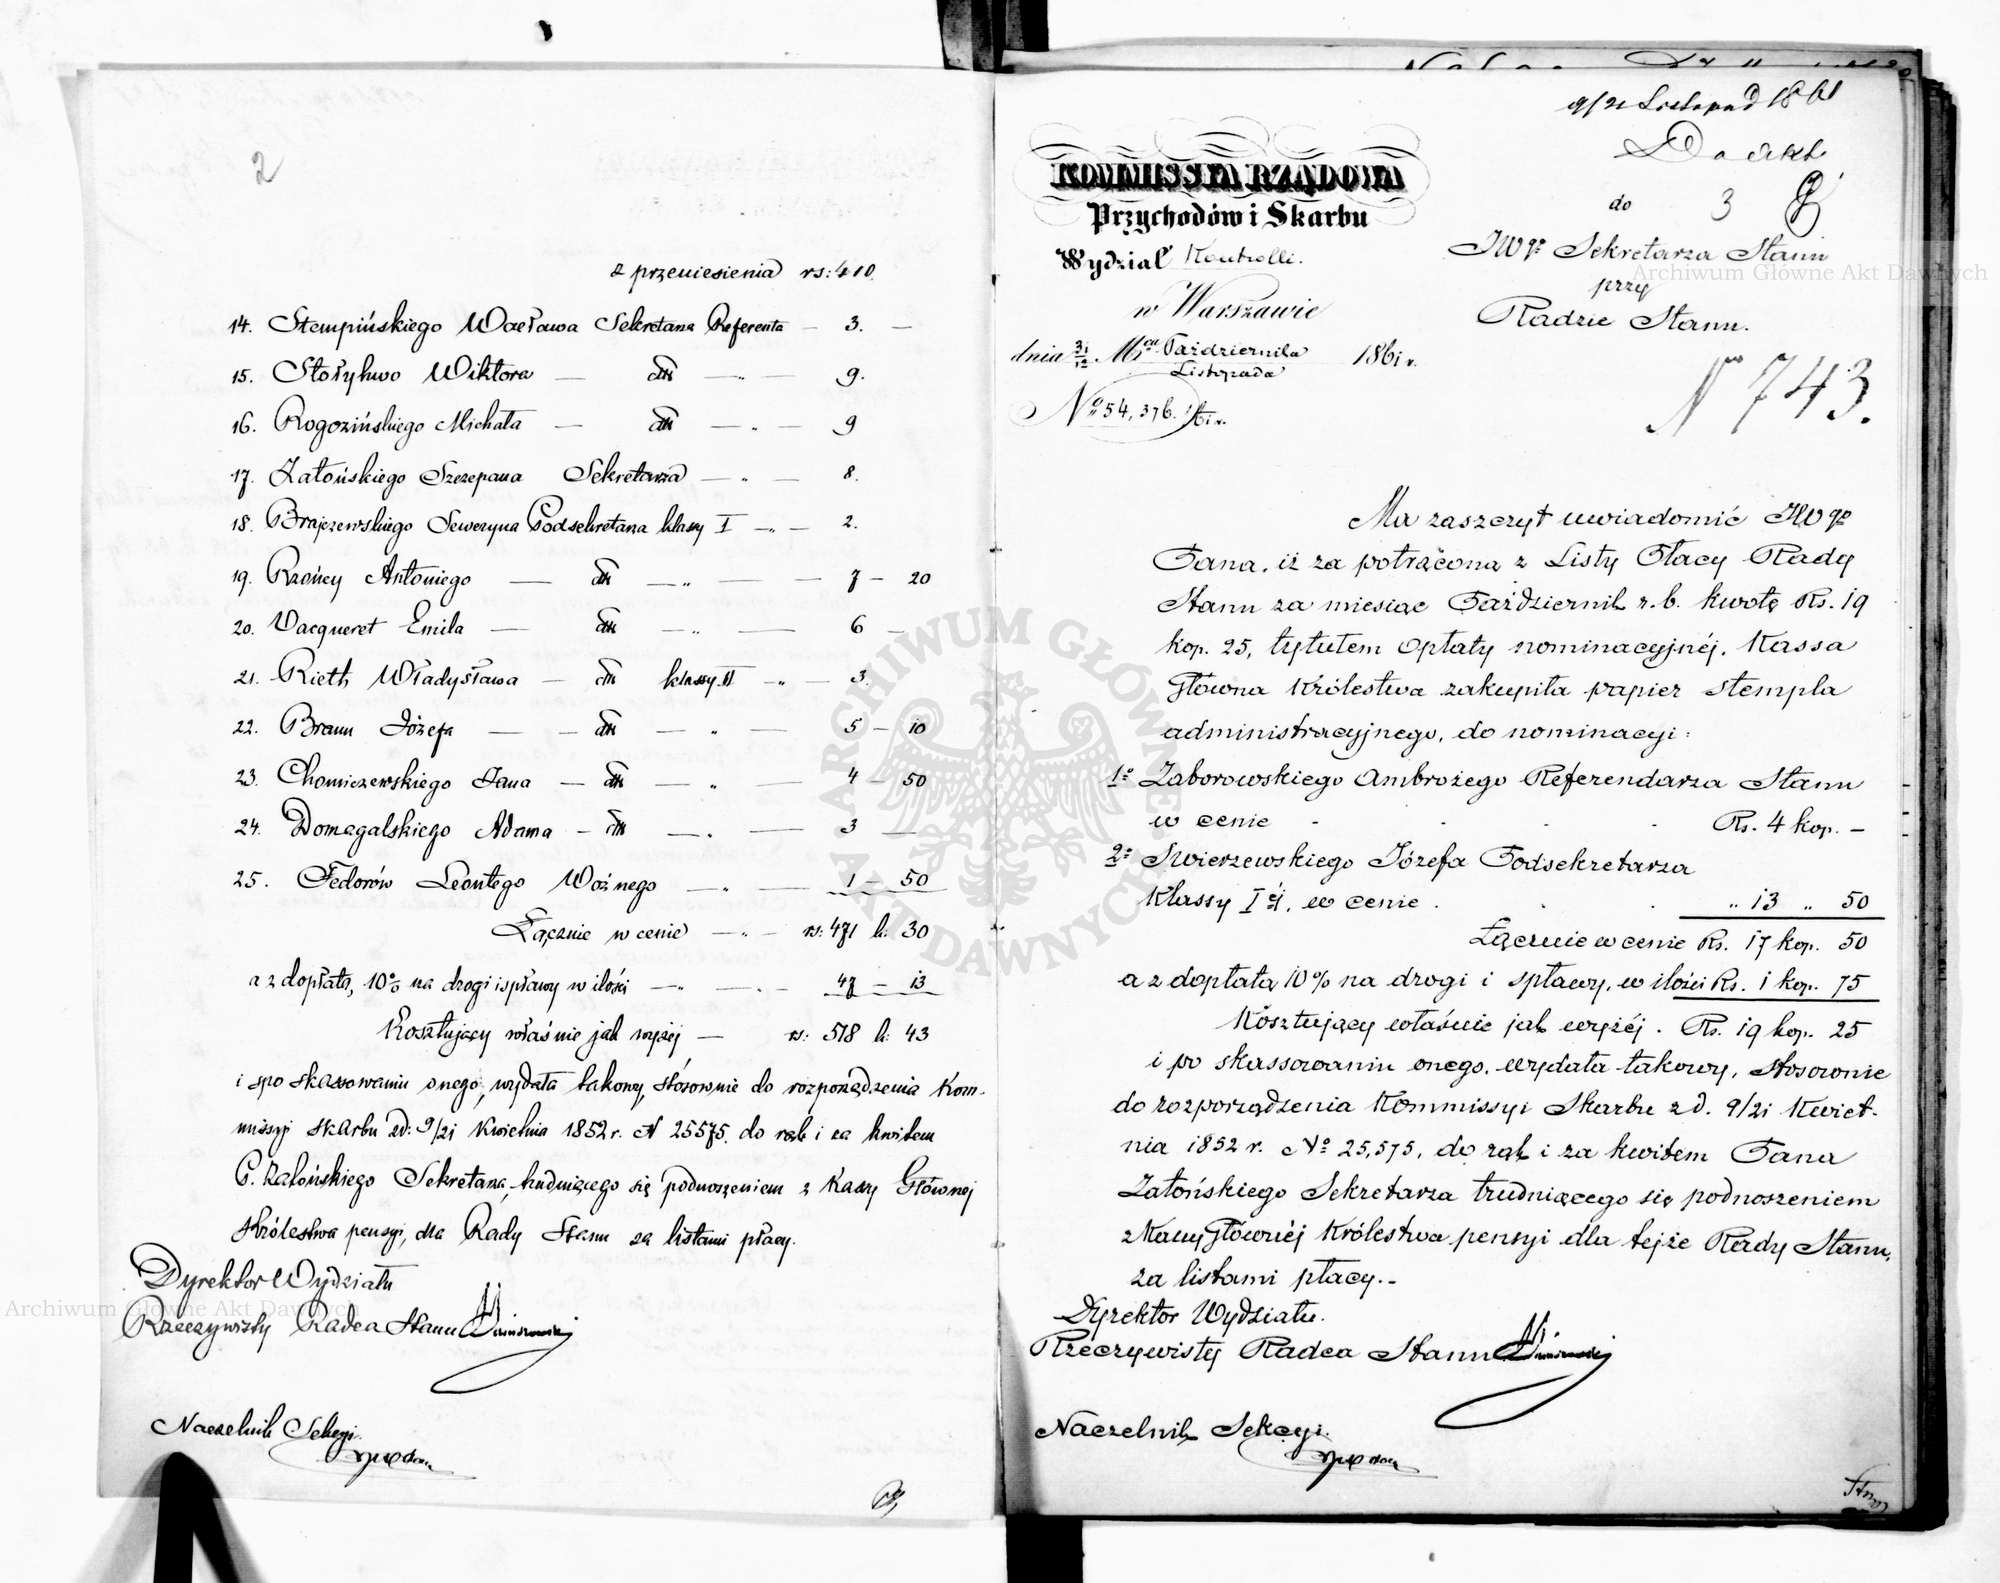 2
z przeniesienia rs: 410.
14. Stempińskiego Wacława Sekretarza Referenta — 3. —
15. Stołyhwo Wiktora — dtt — „ — 9.
16. Rogozińskiego Michała — dtt — „ — 9
17. Załońskiego Szczepana Sekretarza — „ — 8.
18. Brajczewskiego Seweryna Podsekretarza klassy I — „ — 2.
19. Rzońcy Antoniego — dtt — „ — 7 — 20
20. Vacqueret Emila — dtt — „ — 6 —
21. Rieth Władysława — dtt klassy II — „ — 3.
22. Braun Józefa — — dtt — „ — 5 — 10
23. Chomiczewskiego Jana — dtt — „ — 4 — 50
24. Domagalskiego Adama — dtt — „ — 3 —
25. Fedorów Leontego Woźnego — „ — 1 — 50
Łącznie w cenie — „ — rs: 471 k: 30
a z dopłatą 10% na drogi i spławy w ilości — „ — „ — 47 — 13
Kosztujący właśnie jak wyżej — rs: 518 k: 43
i po skassowaniu onego, wydała takowy, stósownie do rozporządzenia Kom-
missyi Skarbu zd: 9/21 Kwietnia 1852 r. N 25575. do rąk i za kwitem
P. Załońskiego Sekretarza, trudniącego się podnoszeniem z Kassy Głównej
Królestwa pensyi, dla Rady Stanu za listami płacy.
Dyrektor Wydziału
Rzeczywisty Radca Stanu
Naczelnik Sekcyi.
9/21 Listopad 1861
Do akt
KOMMISSYA RZĄDOWA
Przychodów i Skarbu
Wydział Kontrolli.
w Warszawie
dnia 31/12 Mca Października/Listopada 1861 r.
No 54,376. /61 r.
do 3
JWgo Sekretarza Stanu
przy
Radzie Stanu.
N 743.
Ma zaszczyt uwiadomić JWgo
Pana, iż za potrąconą z Listy Płacy Rady
Stanu za miesiąc Październik r. b. kwotę Rs. 19
kop. 25, tytułem Opłaty nominacyjnéj, Kassa
Główna Królestwa zakupiła papier stempla
administracyjnego, do nominacyi:
1o Zaborowskiego Ambrożego Referendarza Stanu
w cenie . . . Rs. 4 kop. —
2o Swierzewskiego Józefa Podsekretarza
Klassy Iéj, w cenie . . . „ 13 „ 50
Łącznie w cenie Rs. 17 kop. 50
a z dopłatą 10% na drogi i spławy, w ilości Rs. 1 kop. 75
Kosztujący właśnie jak wyżéj. Rs. 19 kop. 25
i po skassowaniu onego, wydała takowy, stosownie
do rozporządzenia Kommissyi Skarbu z d. 9/21 Kwiet-
nia 1852 r. No 25,575, do rąk i za kwitem Pana
Załońskiego Sekretarza trudniącego się podnoszeniem
z Kassy Głównéj Królestwa pensyi dla tejże Rady Stanu,
za listami płacy.-
Dyrektor Wydziału.
Rzeczywisty Radca Stanu
Naczelnik Sekcyi.
Archiwum Główne Akt Dawnych
Archiwum Główne Akt Dawnych
ARCHIWUM GŁÓWNE AKT DAWNYCH